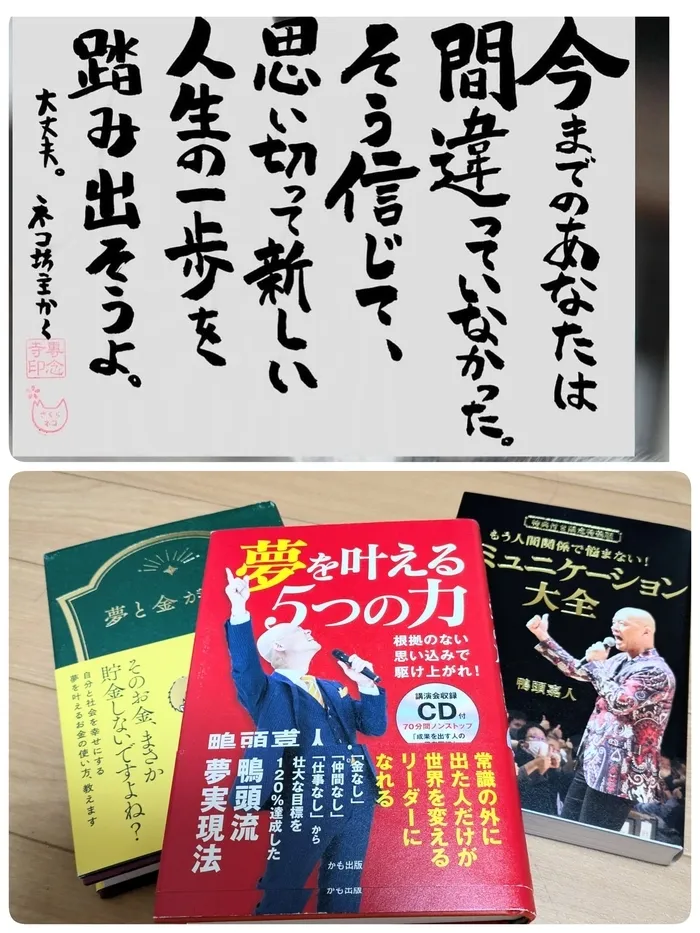 今までのあなたは
間違っていなかった。
そう信じて、
思い切って新しい
人生の一歩を
踏み出そうよ。
大丈夫。 ネコ坊主かく
専念
寺印
さくら
ネコ
夢と金が
そのお金、まさか
貯金しないですよね？
自分と社会を幸せにする
夢を叶えるお金の使い方、教えます
夢を叶える
5つの力
根拠のない
思い込みで
駆け上がれ！
講演会収録
CD付
70分間ノンストップ
「成果を出す人の
鴨頭嘉人
常識の外に
出た人だけが
世界を変える
リーダーに
なれる
「金なし」
「仲間なし」
「仕事なし」から
壮大な目標を
120％達成した
鴨頭流
夢実現法
かも出版
かも出版
もう人間関係で悩まない！
ミュニケーション
大全
鴨頭嘉人